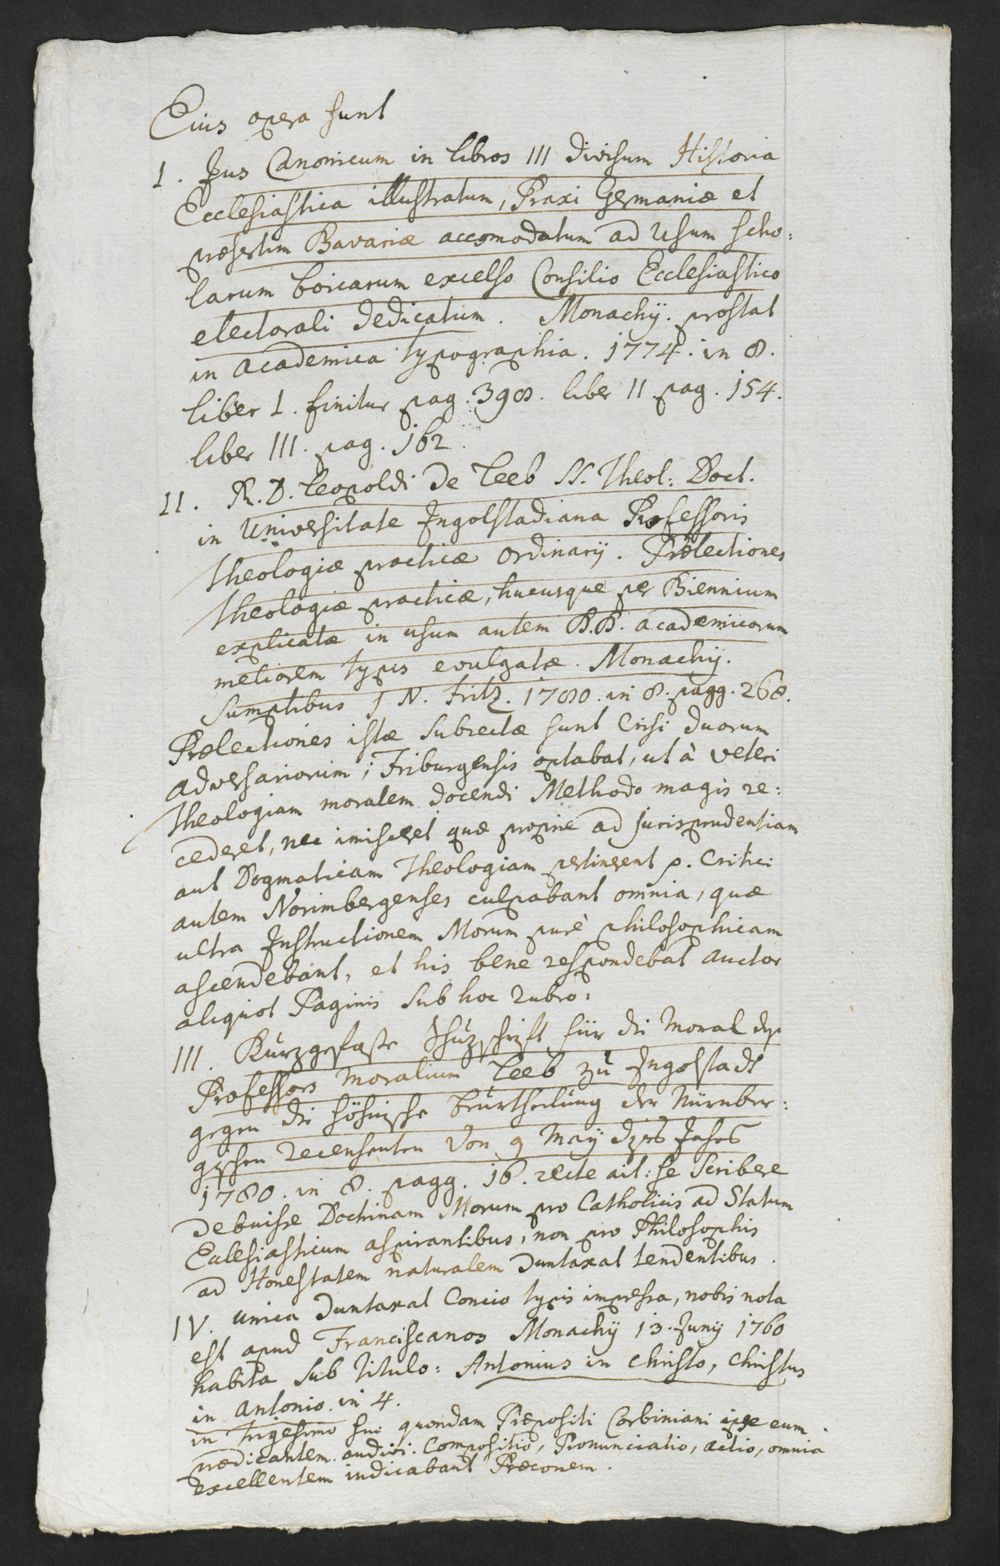 Eius opera sunt
I. Jus Canonicum in libros III divisum Historia
Ecclesiastica illustratum, Praxi Germaniæ et
præsertim Bavariæ accomodatum ad Usum scho:
larum boicarum excelso Consilio Ecclesiastico
electorali dedicatum. Monachij. prostat
in academica typographia. 1774. in 8.
liber I. finitur pag. 398. liber II pag. 154.
liber III. pag. 162.
II. R. D. Leopoldi De Leeb SS. Theol: Doct.
in Universitate Ingolstadiana Professoris
Theologiæ practicæ ordinarij. Prælectiones
Theologiæ practicæ, hucusque per Biennium
explicatæ in usum autem R.R. academicorum
meliorem typis evulgatæ. Monachij.
Sumptibus J. N. Fritz. 1780. in 8. pagg. 268.
Prælectiones istæ subrectæ sunt Crisi duorum
adversariorum; Friburgensis optabat, ut à veteri
Theologiam moralem docendi Methodo magis re:
cederet, nec imisceret quæ propriè ad jurisprudentiam
aut Dogmaticam Theologiam pertinerent p. Critici
autem Norimbergenses culpabant omnia, quæ
ultra Instructionem Morum purè philosophicam
ascendebant, et his bene respondebat auctor
aliquot Paginis sub hoc rubro:
III. Kurzgefaßte Schuzschrift für die Moral des
Professors Moralium Leeb zu Ingolstadt
gegen die höhnische beurtheilung der Nürnber:
gischen recensenten von 9 Maij dises Jahrs
1780. in 8. pagg. 16. recte ait: se scribere
debuisse Doctrinam Morum pro Catholicis ad Statum
Eclesiasticum aspirantibus, non pro Philosophis
ad Honestatem naturalem duntaxat tendentibus.
IV. unica duntaxat Concio typis impressa, nobis nota
est apud Franciscanos Monachij 13. Junij 1760
habita sub titulo: Antonius in Christo, Christus
in Antonio. in 4.
in trigesimo sui quondam Præpositi Corbiniani ipse eum
prædicantem audivi: Compositio, Pronunciatio, actio, omnia
excellentem indicabant Præconem.